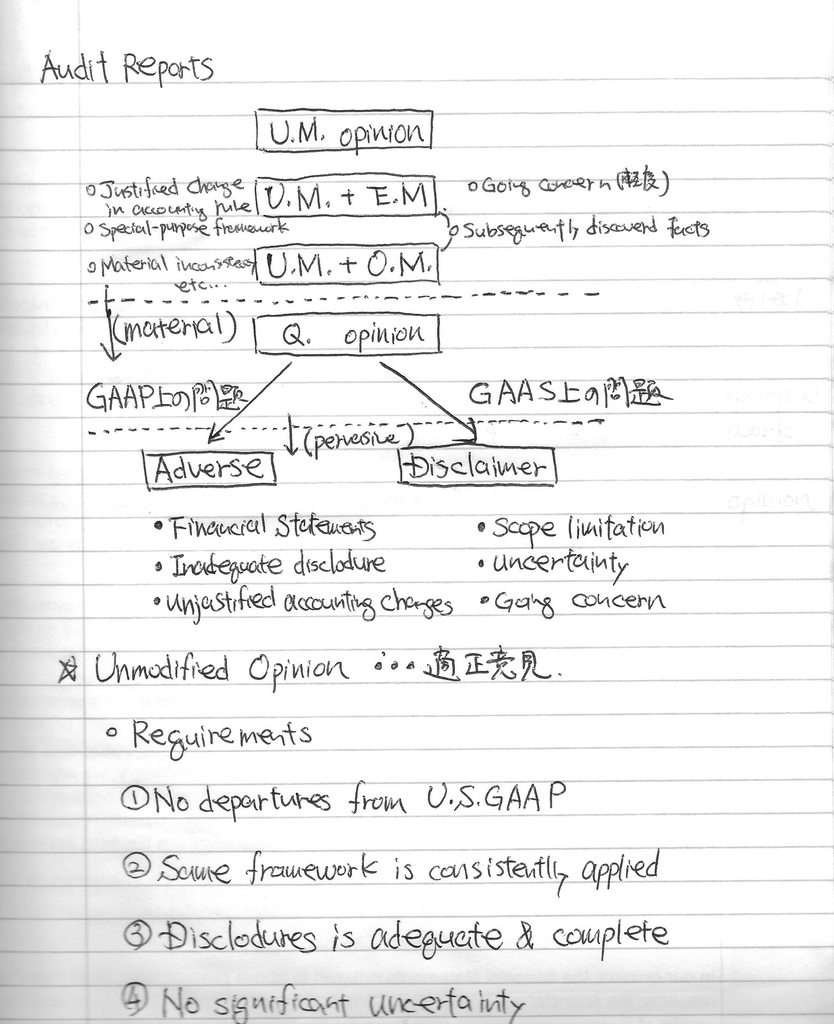 Audit Reports
U.M. opinion
○ Justified change
in accounting rule
U.M. + E.M
○ Going concern (軽度)
○ Special-purpose framework
○ Subsequently discoverd facts
○ Material inconsistency
etc...
U.M. + O.M.
(material)
Q. opinion
GAAP上の問題
GAAS上の問題
(pervasive)
Adverse
Disclaimer
• Financial Statements
• Scope limitation
• Inadequate disclodure
• uncertainty
• Unjastified accounting changes
• Going concern
☆ Unmodified Opinion ... 適正意見.
○ Requirements
① No departures from U.S.GAAP
② Same framework is consistently applied
③ Disclodures is adequate & complete
④ No significant uncertainty